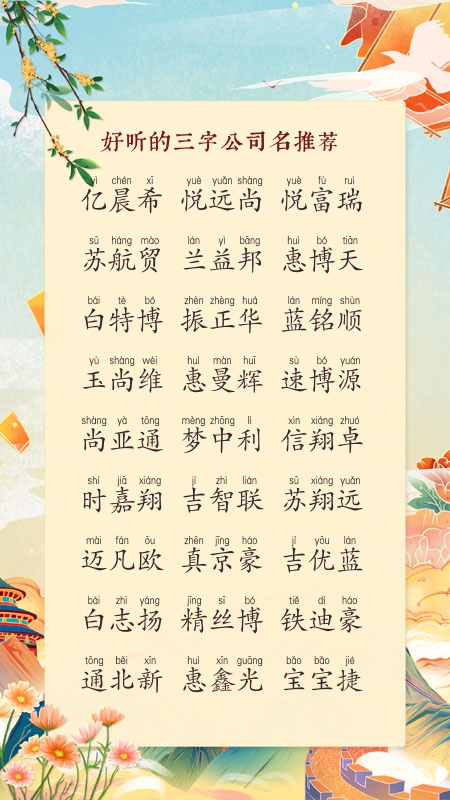 好听的三字公司名推荐
yì chén xī yuè yuǎn shàng yuè fù ruì
亿晨希 悦远尚 悦富瑞
sū háng mào lán yì bāng huì bó tiān
苏航贸 兰益邦 惠博天
bái tè bó zhèn zhèng huá lán míng shùn
白特博 振正华 蓝铭顺
yù shàng wéi huì màn huī sù bó yuán
玉尚维 惠曼辉 速博源
shàng yà tōng mèng zhōng lì xìn xiáng zhuó
尚亚通 梦中利 信翔卓
shí jiā xiáng jí zhì lián sū xiáng yuǎn
时嘉翔 吉智联 苏翔远
mài fán ōu zhēn jīng háo jí yōu lán
迈凡欧 真京豪 吉优蓝
bái zhì yáng jīng sī bó tiě dí háo
白志扬 精丝博 铁迪豪
tōng běi xīn huì xīn guāng bǎo bǎo jié
通北新 惠鑫光 宝宝捷